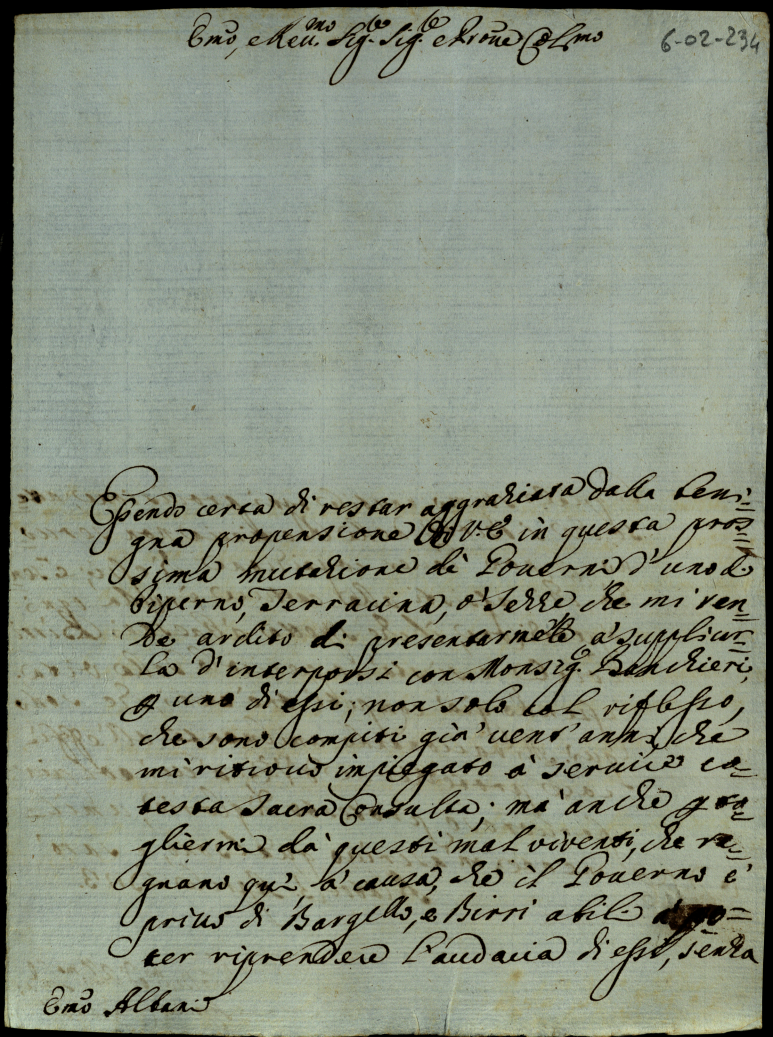 Emo, e Reu.mo Sig.re Sig.re e Prone Colmo
6-02-234
Essendo certa di restar aggraziata dalla beni=
gna propensione di V: E in questa pros=
sima mutazione dè Governi d'uno di
Piperno, Terracina, ò Sezze che mi ren=
de ardito di presentarmele à supplicar=
la d'interporsi con Monsig.r Banchieri,
p uno di essi; non solo col riflesso,
che sono compiti già vent'anni, che
mi ritrovo impiegato à servire co=
testa Sacra Consulta; mà anche p to=
gliermi dà questi mal viventi, che re=
gnano quì à causa, che il Governo è
privo di Bargello, e Birri abili à po=
ter riprendere l'audacia di essi, senza
Emo Albani